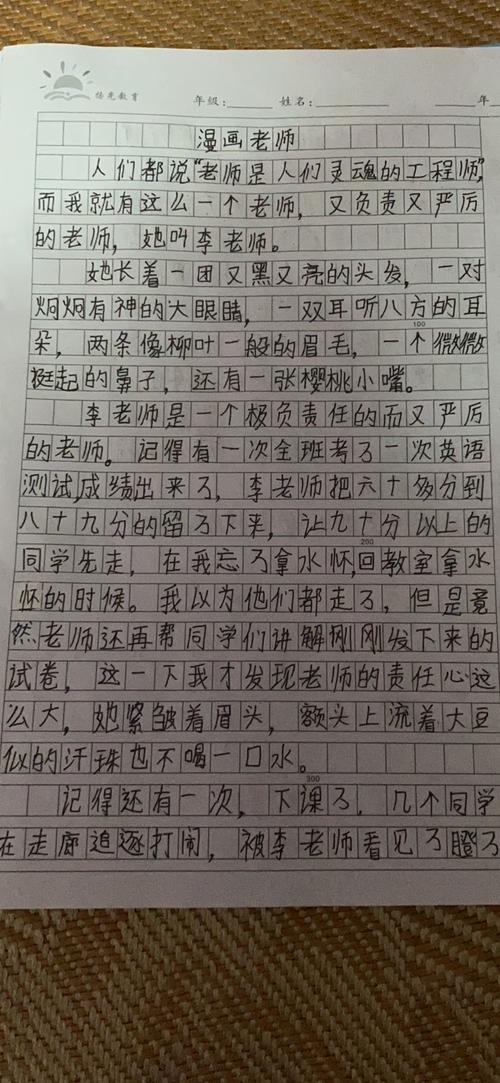 扬光教育
年级：
姓名：
年
漫画老师
人们都说“老师是人们灵魂的工程师”，
而我就有这么一个老师，又负责又严厉
的老师，她叫李老师。
她长着一团又黑又亮的头发，一对
炯炯有神的大眼睛，一双耳听八方的耳
100
朵，两条像柳叶一般的眉毛，一个微微
挺起的鼻子，还有一张樱桃小嘴。
李老师是一个极负责任的而又严厉
的老师。记得有一次全班考了一次英语
测试，成绩出来了，李老师把六十多分到
八十九分的留了下来，让九十分以上的
200
同学先走，在我忘了拿水怀，回教室拿水
怀的时候。我以为他们都走了，但是竟
然老师还再帮同学们讲解刚刚发下来的
试卷，这一下我才发现老师的责任心这
么大，她紧皱着眉头，额头上流着大豆
似的汗珠也不喝一口水。
300
记得还有一次，下课了，几个同学
在走廊追逐打闹，被李老师看见了瞪了